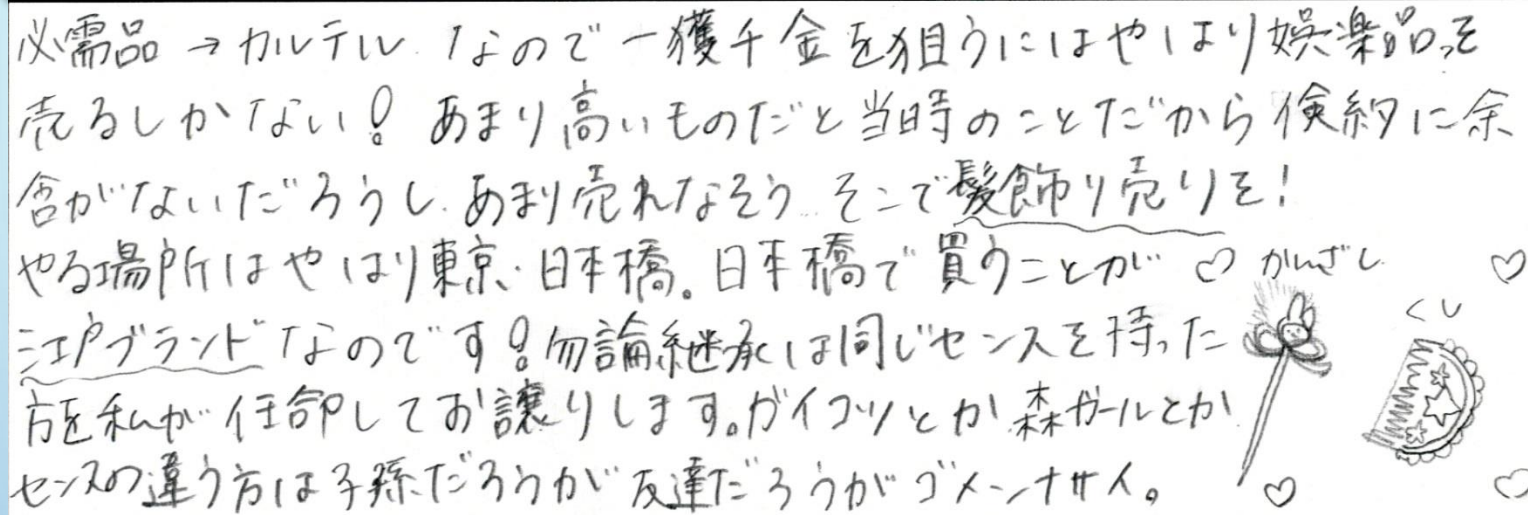 必需品→カルテル なので一獲千金を狙うにはやはり娯楽品を
売るしかない! あまり高いものだと当時のことだから倹約に余
念がないだろうし あまり売れなそう…そこで髪飾り売りを!
やる場所はやはり東京・日本橋。日本橋で買うことが ♡ かんざし ♡
江戸ブランドなのです!勿論継承は同じセンスを持った くし
方を私が任命してお譲りします。ガイコツとか森ガールとか
センスの違う方は子孫だろうが友達だろうがゴメンナサイ。 ♡ ♡